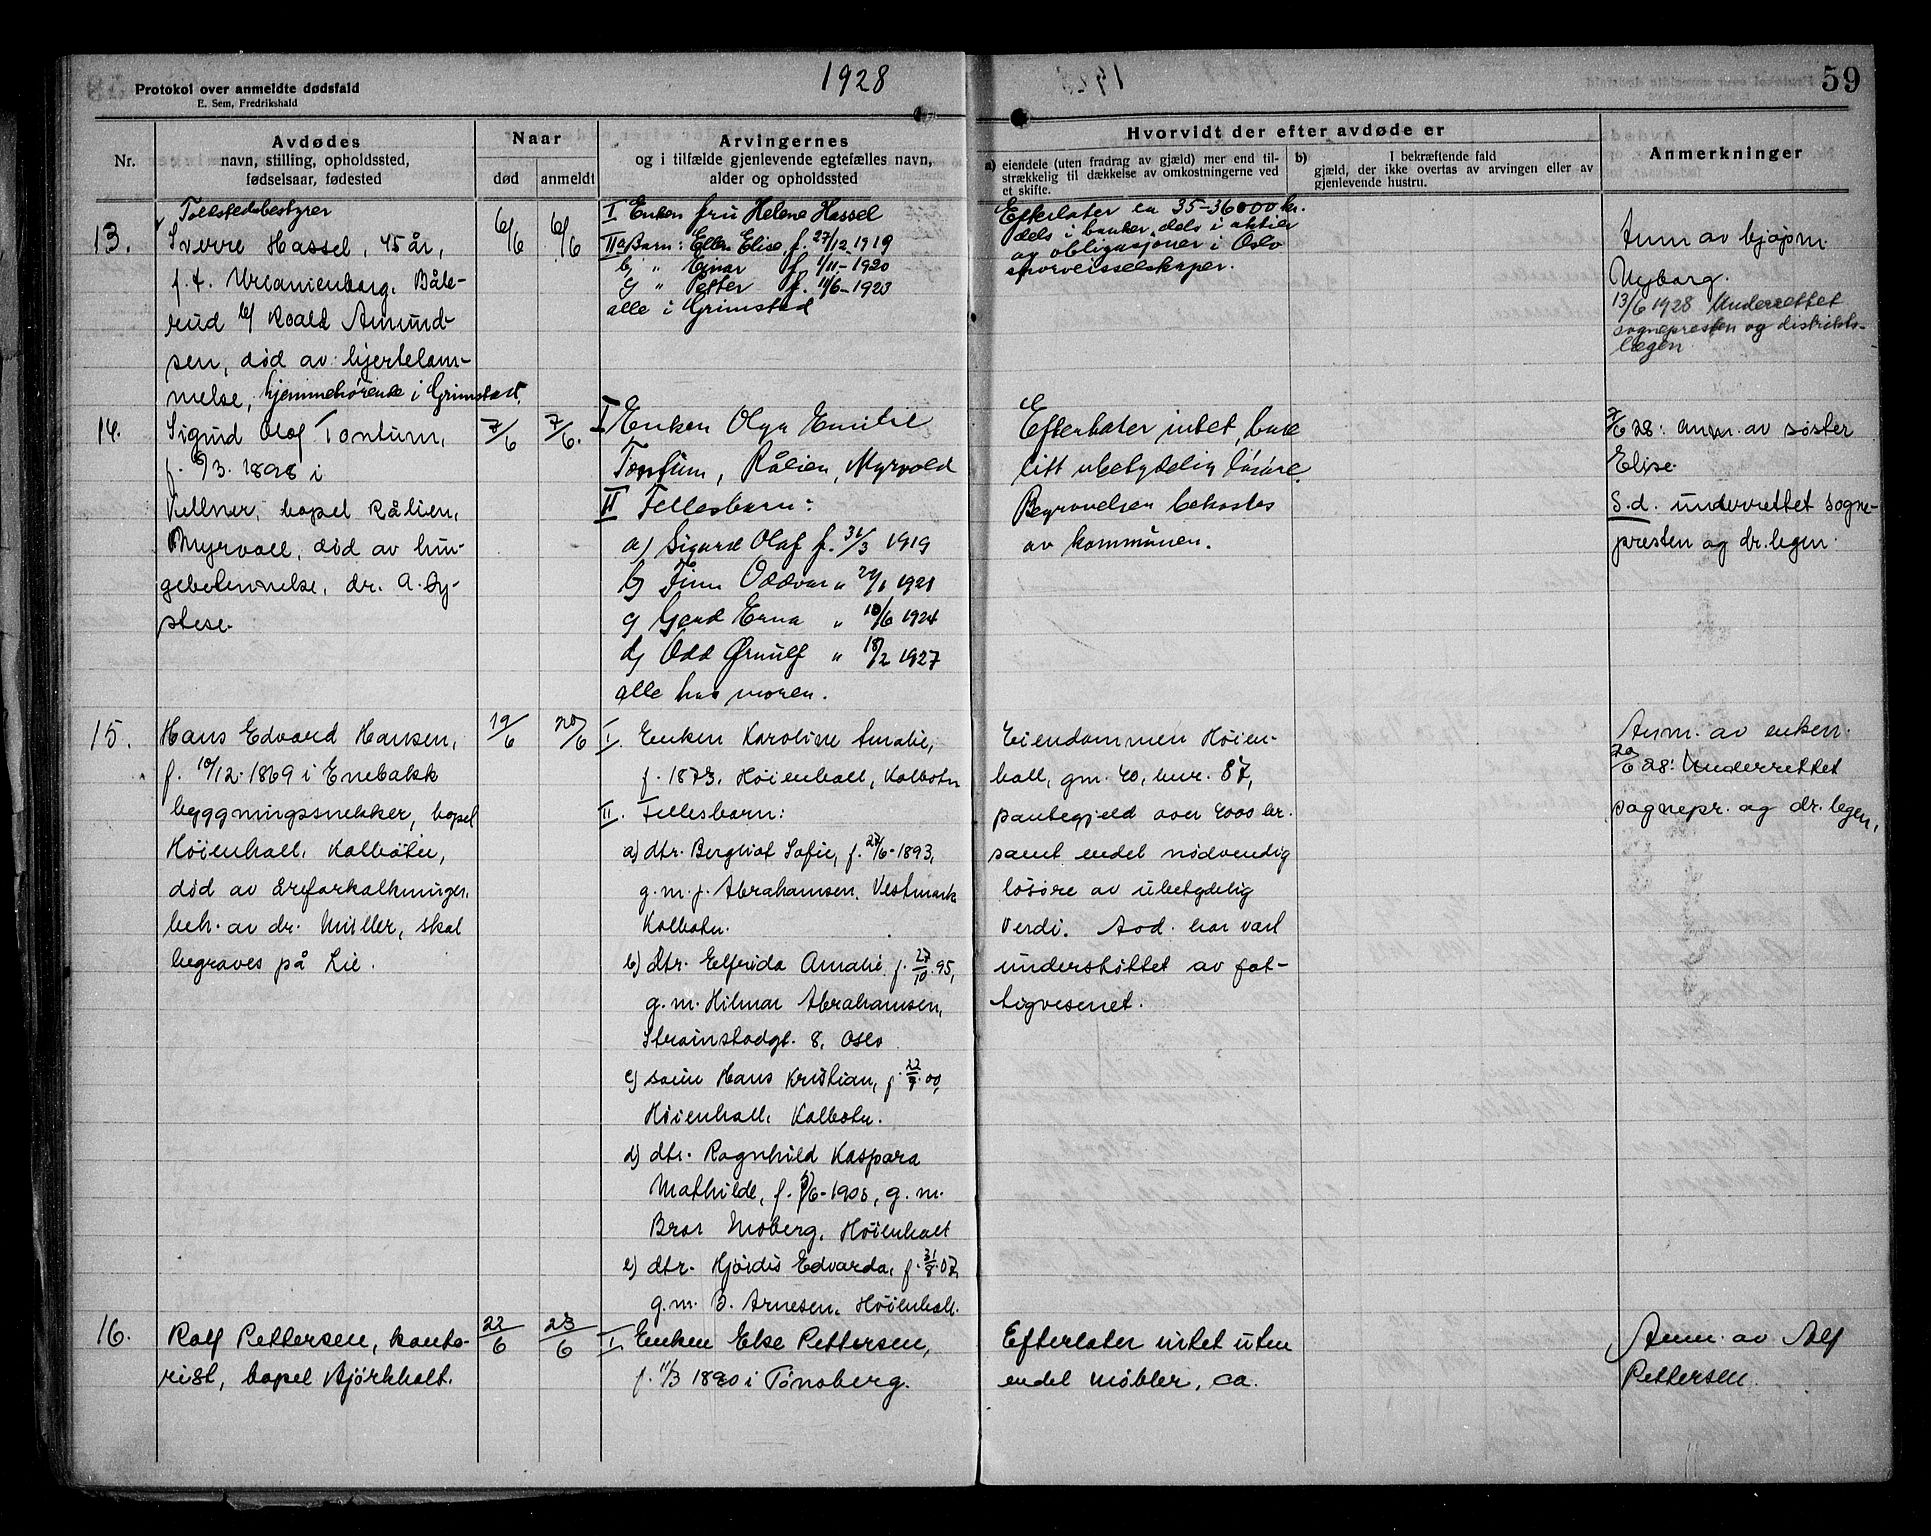 1928
59
Protokol over anmeldte dødsfald
E. Sem, Fredrikshald
Nr.
Avdødes
navn, stilling, opholdssted,
fødselsaar, fødested
Naar
død
anmeldt
Arvingernes
og i tilfælde gjenlevende egtefælles navn,
alder og opholdssted
Hvorvidt der efter avdøde er
a) eiendele (uten fradrag av gjæld) mer end til-
strækkelig til dækkelse av omkostningerne ved
et skifte.
b) I bekræftende fald
gjæld, der ikke overtas av arvingen eller av
gjenlevende hustru.
Anmerkninger
13.
Tollstedsbestyrer
Sverre Hassel, 45 år,
f. i. Uranienborg. Båle-
rud b/ Roald Amund-
sen, død av hjertelam-
melse, hjemmehörende i Grimstad.
6/6
6/6
I Enken fru Helene Hassel
II a Barn: Ellen Elise f. 27/12 1919
b) " Einar f. 1/11-1920
c) " Petter f. 11/6-1923
alle i Grimstad
Efterlater ca 35-36000 kr.
dels i banker, dels i aktier
og obligasjoner i Oslo
sporveisselskaper.
Anm av
Nyborg.
13/6 1928 Underrettet
sognepresten og distrikts-
lægen
14.
Sigurd Olaf Tontum,
f. 9/3. 1898 i
bopel Rålien,
Myrvoll, død av lun-
gebetennelse, dr. A. Sy-
stese.
7/6
7/6.
I Enken Olga Emilie
Tontum, Rålien, Myrvold
II Fellesbarn:
a) Sigurd Olaf f. 31/3 1919
b) Finn Oddvar " 29/1 1921
c) Gerd Erna " 10/6 1924
d) Odd Ørnulf " 18/2 1927
alle hos moren.
Efterlater intet, bare
litt ubetydelig løsøre.
Begravelsen bekostes
av kommunen.
7/6 28: anm. av søster
Elise.
S.d. underrettet sogne-
presten og dr. legen.
15.
Hans Edvard Hansen,
f. 10/12-1869 i Enebakk
byggningssnekker, bopel
Høienhall, Kolbotn,
død av åreforkalkninger,
beh. av dr. Müller, skal
begraves på Lie.
19/6
20/6
I. Enken Karoline Amalie,
f. 1873, Høienhall, Kolbotn
II. Fellesbarn:
a) dtr. Bergliot Sofie, f. 27/6-1893,
g.m. J. Abrahamsen, Vestmark
Kolbotn.
b) dtr. Elfrida Amalie f. 27/10.95,
g.m. Hilmar Abrahamsen,
Strömstadgt. 8, Oslo
c) sønn Hans Kristian, f. 22/9.00,
Høienhall, Kolbotn.
d) dtr. Ragnhild Kaspara
Mathilde, f. 3/6-1905, g.m.
Bror Moberg, Høienhall
e) dtr. Hjørdis Edvarda, f. 31/8.07,
g.m. B. Arnesen, Høienhall.
Eiendommen Høien-
hall, gnr. 40, bnr. 87,
pantegjeld over 4000 kr.
samt endel nødvendig
løsøre av ubetydelig
verdi. Avd. har vært
understøttet av fat-
tigvesenet.
Anm. av enken.
20/6 28: Underrettet
sognepr. og dr. legen.
16.
Rolf Pettersen, konto-
rist, bopel Bjørkholt.
22/6
23/6
I. Enken Else Pettersen,
f. 11/3 1890 i Tønsberg.
Efterlater intet uten
endel møbler, ca.
Anm. av Alf
Pettersen.